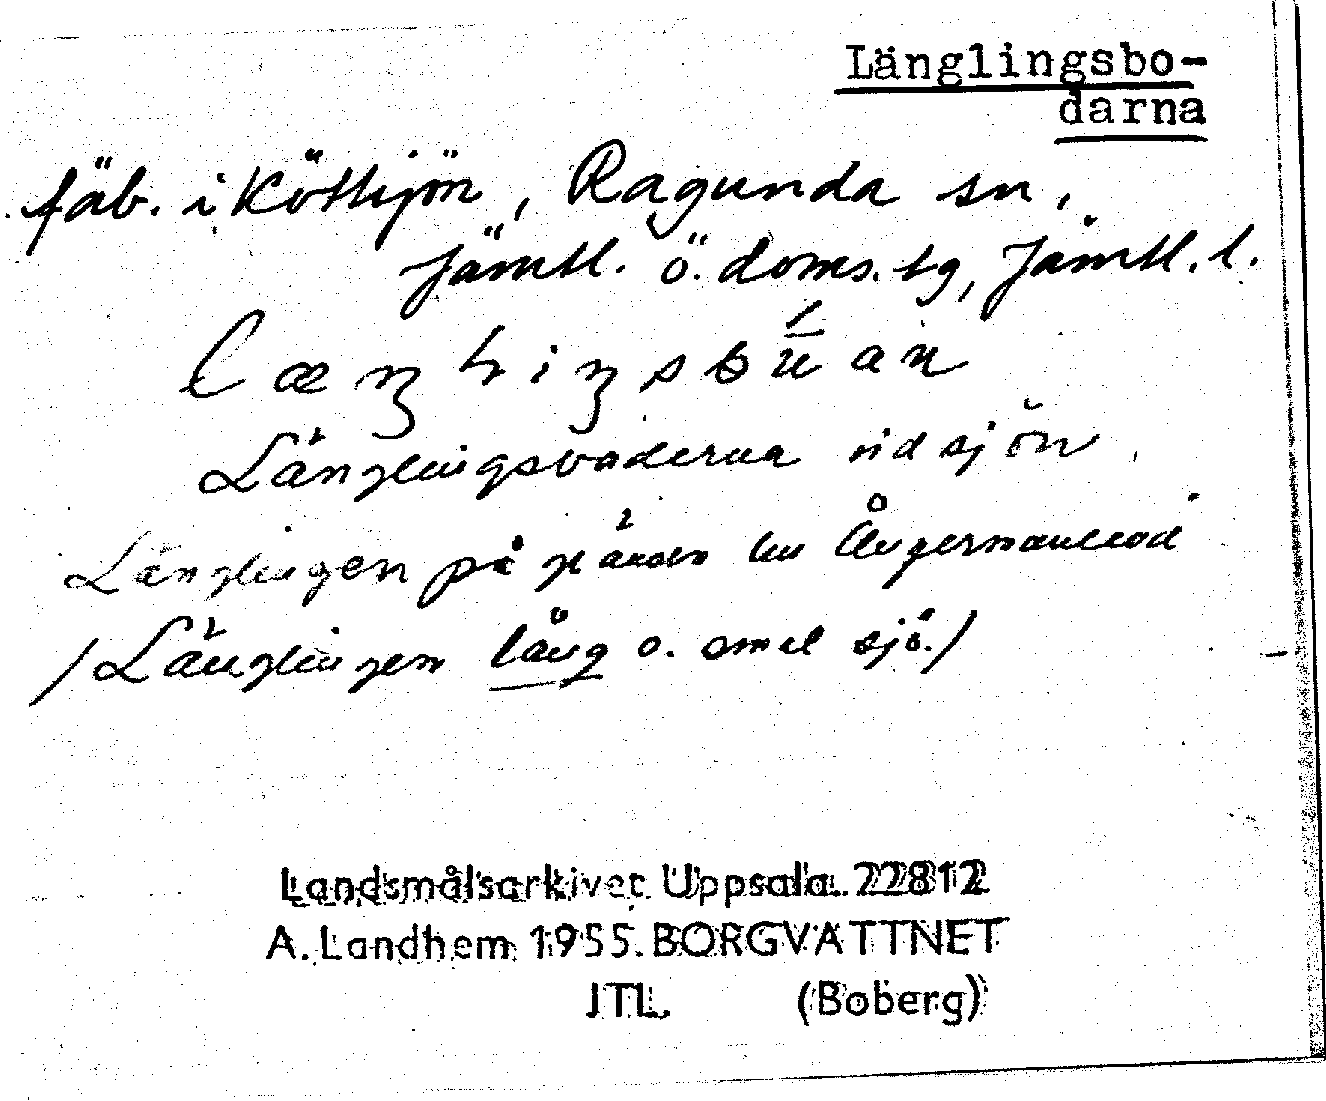 Länglingsbo-
darna
fäb. i Köttsjön, Ragunda sn,
Jämtl. ö. doms. tg, Jämtl. l.
Länglingsboderna vid sjön
Länglingen på gränsen till Ångermanland
/Länglingen lång o. smal sjö./
Landsmålsarkivet Uppsala 22812
A. Landhem 1955. BORGVATTNET
JTL. (Boberg)